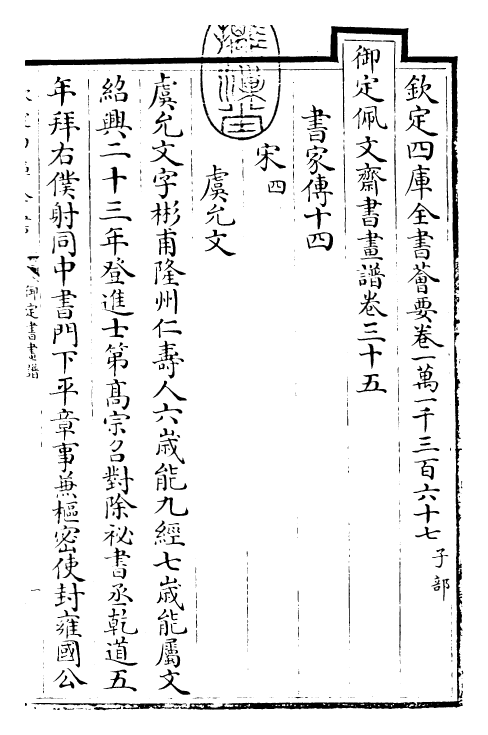 欽定四庫全書薈要卷一萬一千三百六十七 子部
御定佩文齋書畫譜卷三十五
書家傳十四
宋四
虞允文
虞允文字彬甫隆州仁壽人六歲能九經七歲能屬文
紹興二十三年登進士第高宗召對除祕書丞乾道五
年拜右僕射同中書門下平章事兼樞密使封雍國公
御定書畫譜
一